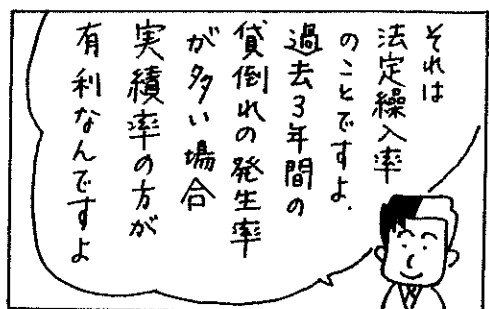 それは
法定繰入率
のことですよ.
過去3年間の
貸倒れの発生率
が多い場合
実績率の方が
有利なんですよ